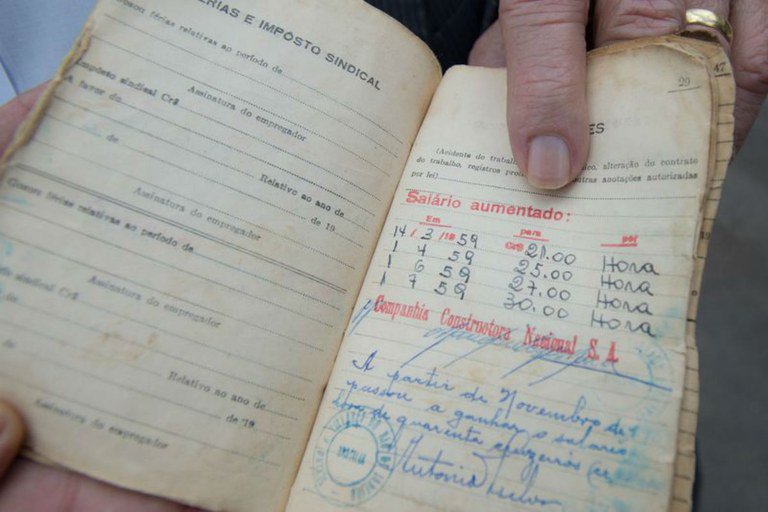 FÉRIAS E IMPÔSTO SINDICAL
Gosou férias relativas ao período de
Assinatura do empregador
Impôsto sindical Cr$
a favor do
de
Relativo ao ano de
de 19
Assinatura do empregador
Gosou férias relativas ao período de
Assinatura do empregador
Impôsto sindical Cr$
de
Relativo ao ano de
de 19
Assinatura do empregador
29
47
ES
(Acidente do trabalho, alteração do contrato
do trabalho, registros outras anotações autorizadas
por lei)
Salário aumentado:
Em para por
14 / 3 /19 59 Cr$ 21.00 Hora
1 4 59 25.00 Hora
1 6 59 27.00 Hora
1 7 59 30.00 Hora
Companhia Constructora Nacional S. A.
A partir de Novembro de
passou a ganhar o salario
de quarenta cruzeiros
Antonio